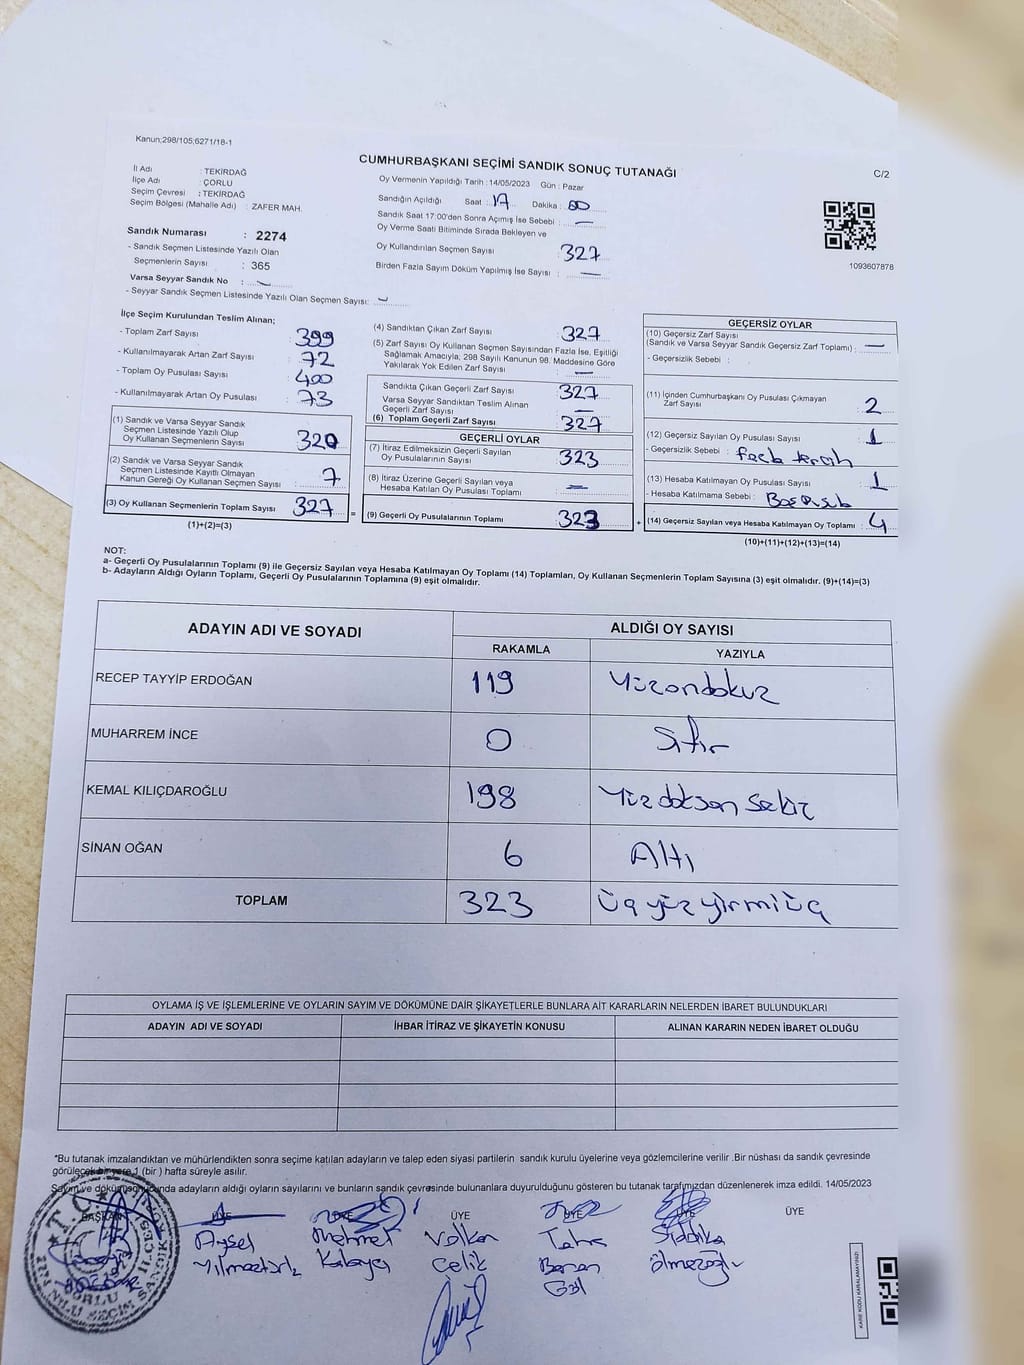 Kanun;298/105;6271/18-1
CUMHURBAŞKANI SEÇİMİ SANDIK SONUÇ TUTANAĞI
C/2
İl Adı : TEKİRDAĞ
İlçe Adı : ÇORLU
Seçim Çevresi : TEKİRDAĞ
Seçim Bölgesi (Mahalle Adı) : ZAFER MAH.
Oy Vermenin Yapıldığı Tarih : 14/05/2023 Gün : Pazar
Sandığın Açıldığı Saat : 17 Dakika : 00
Sandık Saat 17:00'den Sonra Açmış İse Sebebi : —
Oy Verme Saati Bitiminde Sırada Bekleyen ve
Oy Kullandırılan Seçmen Sayısı 327
Birden Fazla Sayım Döküm Yapılmış İse Sayısı : —
1093607878
Sandık Numarası : 2274
- Sandık Seçmen Listesinde Yazılı Olan
Seçmenlerin Sayısı : 365
Varsa Seyyar Sandık No : —
- Seyyar Sandık Seçmen Listesinde Yazılı Olan Seçmen Sayısı: —
İlçe Seçim Kurulundan Teslim Alınan;
- Toplam Zarf Sayısı 399
- Kullanılmayarak Artan Zarf Sayısı : 72
- Toplam Oy Pusulası Sayısı : 400
- Kullanılmayarak Artan Oy Pusulası : 73
(1) Sandık ve Varsa Seyyar Sandık
Seçmen Listesinde Yazılı Olup
Oy Kullanan Seçmenlerin Sayısı 320
(2) Sandık ve Varsa Seyyar Sandık
Seçmen Listesinde Kayıtlı Olmayan
Kanun Gereği Oy Kullanan Seçmen Sayısı : 7
(3) Oy Kullanan Seçmenlerin Toplam Sayısı 327 =
(1)+(2)=(3)
(4) Sandıktan Çıkan Zarf Sayısı : 327
(5) Zarf Sayısı Oy Kullanan Seçmen Sayısından Fazla İse, Eşitliği
Sağlamak Amacıyla, 298 Sayılı Kanunun 98. Maddesine Göre
Yakılarak Yok Edilen Zarf Sayısı : —
Sandıkta Çıkan Geçerli Zarf Sayısı : 327
Varsa Seyyar Sandıktan Teslim Alınan
Geçerli Zarf Sayısı : —
(6) Toplam Geçerli Zarf Sayısı : 327
GEÇERLİ OYLAR
(7) İtiraz Edilmeksizin Geçerli Sayılan
Oy Pusulalarının Sayısı : 323
(8) İtiraz Üzerine Geçerli Sayılan veya
Hesaba Katılan Oy Pusulası Toplamı : —
(9) Geçerli Oy Pusulalarının Toplamı : 323 +
GEÇERSİZ OYLAR
(10) Geçersiz Zarf Sayısı
(Sandık ve Varsa Seyyar Sandık Geçersiz Zarf Toplamı) : —
- Geçersizlik Sebebi :
(11) İçinden Cumhurbaşkanı Oy Pusulası Çıkmayan
Zarf Sayısı : 2
(12) Geçersiz Sayılan Oy Pusulası Sayısı : 1
- Geçersizlik Sebebi : fazla tercih
(13) Hesaba Katılmayan Oy Pusulası Sayısı : 1
- Hesaba Katılmama Sebebi :
(14) Geçersiz Sayılan veya Hesaba Katılmayan Oy Toplamı : 4
(10)+(11)+(12)+(13)=(14)
NOT:
a- Geçerli Oy Pusulalarının Toplamı (9) ile Geçersiz Sayılan veya Hesaba Katılmayan Oy Toplamı (14) Toplamları, Oy Kullanan Seçmenlerin Toplam Sayısına (3) eşit olmalıdır. (9)+(14)=(3)
b- Adayların Aldığı Oyların Toplamı, Geçerli Oy Pusulalarının Toplamına (9) eşit olmalıdır.
ADAYIN ADI VE SOYADI ALDIĞI OY SAYISI
RAKAMLA YAZIYLA
RECEP TAYYİP ERDOĞAN 119 Yüzondokuz
MUHARREM İNCE 0 Sıfır
KEMAL KILIÇDAROĞLU 198 Yüzdoksan sekiz
SİNAN OĞAN 6 Altı
TOPLAM 323 üçyüzyirmiüç
OYLAMA İŞ VE İŞLEMLERİNE VE OYLARIN SAYIM VE DÖKÜMÜNE DAİR ŞİKAYETLERLE BUNLARA AİT KARARLARIN NELERDEN İBARET BULUNDUKLARI
ADAYIN ADI VE SOYADI İHBAR İTİRAZ VE ŞİKAYETİN KONUSU ALINAN KARARIN NEDEN İBARET OLDUĞU
*Bu tutanak imzalandıktan ve mühürlendikten sonra seçime katılan adayların ve talep eden siyasi partilerin sandık kurulu üyelerine veya gözlemcilerine verilir .Bir nüshası da sandık çevresinde
görülecek bir yere 1 (bir ) hafta süreyle asılır.
Sayım ve döküm sonucunda adayların aldığı oyların sayılarını ve bunların sandık çevresinde bulunanlara duyurulduğunu gösteren bu tutanak tarafımızdan düzenlenerek imza edildi. 14/05/2023
BAŞKAN ÜYE ÜYE ÜYE ÜYE ÜYE ÜYE
Aysel Mehmet Volkan Taha Sıddıka
Kabaycı Çelik Baran
Gül
T.C.
KARE KODU KARALAMAYINIZ!